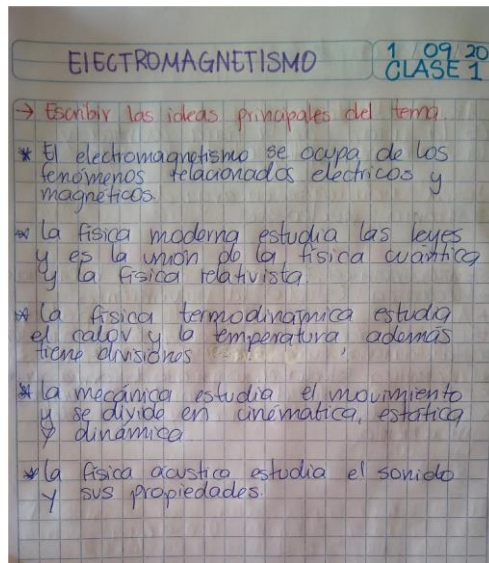 ElECTROMAGNETISMO
1 / 09 / 20
CLASE 1
→ Escribir las ideas principales del tema
* El electromagnetismo se ocupa de los
fenómenos relacionados electricos y
magnéticos.
* la física moderna estudia las leyes
y es la unión de la física cuántica
y la física relativista.
* la física termodinamica estudia
el calor y la temperatura, además
tiene divisiones
* la mecánica estudia el movimiento
y se divide en cinematica, estatica
y dinámica
* la física acustica estudia el sonido
y sus propiedades.